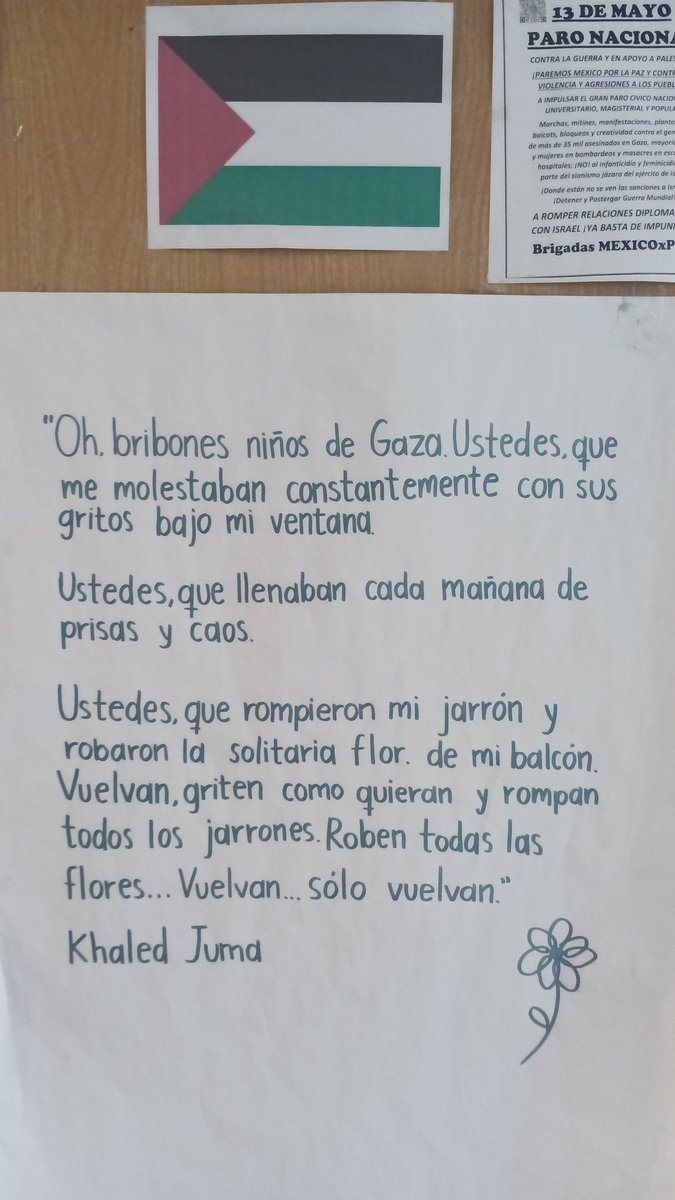 13 DE MAYO
PARO
CONTRA LA GUERRA Y EN APOYO A
¡PAREMOS MEXICO POR LA PAZ Y
VIOLENCIA Y AGRESIONES A LOS
A IMPULSAR EL GRAN PARO CIVICO
UNIVERSITARIO, MAGISTERIAL Y
Marchas, mitines, manifestaciones,
boicots, bloqueos y creatividad contra el
de más de 35 mil asesinados en Gaza,
y mujeres en bombardeos y masacres en
hospitales; ¡NO! al infanticidio y
parte del sionismo jázaro del ejército de
¡Donde están no se ven las sanciones a
¡Detener y Postergar Guerra
A ROMPER RELACIONES
CON ISRAEL ¡YA BASTA DE
Brigadas
"Oh, bribones niños de Gaza. Ustedes, que
me molestaban constantemente con sus
gritos bajo mi ventana.
Ustedes, que llenaban cada mañana de
prisas y caos.
Ustedes, que rompieron mi jarrón y
robaron la solitaria flor. de mi balcón.
Vuelvan, griten como quieran y rompan
todos los jarrones. Roben todas las
flores... Vuelvan... sólo vuelvan."
Khaled Juma